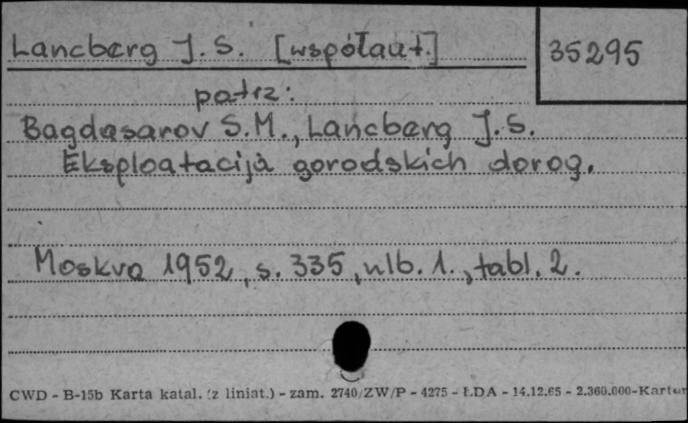 Lancberg J. S. [współaut.]
35295
patrz:
Bagdasarov S.M., Lancberg J.S.
Eksploatacija gorodskich dorog.
Moskva 1952, s. 335, nlb. 1., tabl. 2.
CWD - B-15b Karta katal. (z liniat.) - zam. 2740/ZW/P - 4275 - ŁDA - 14.12.65 - 2.360.000-Kartur